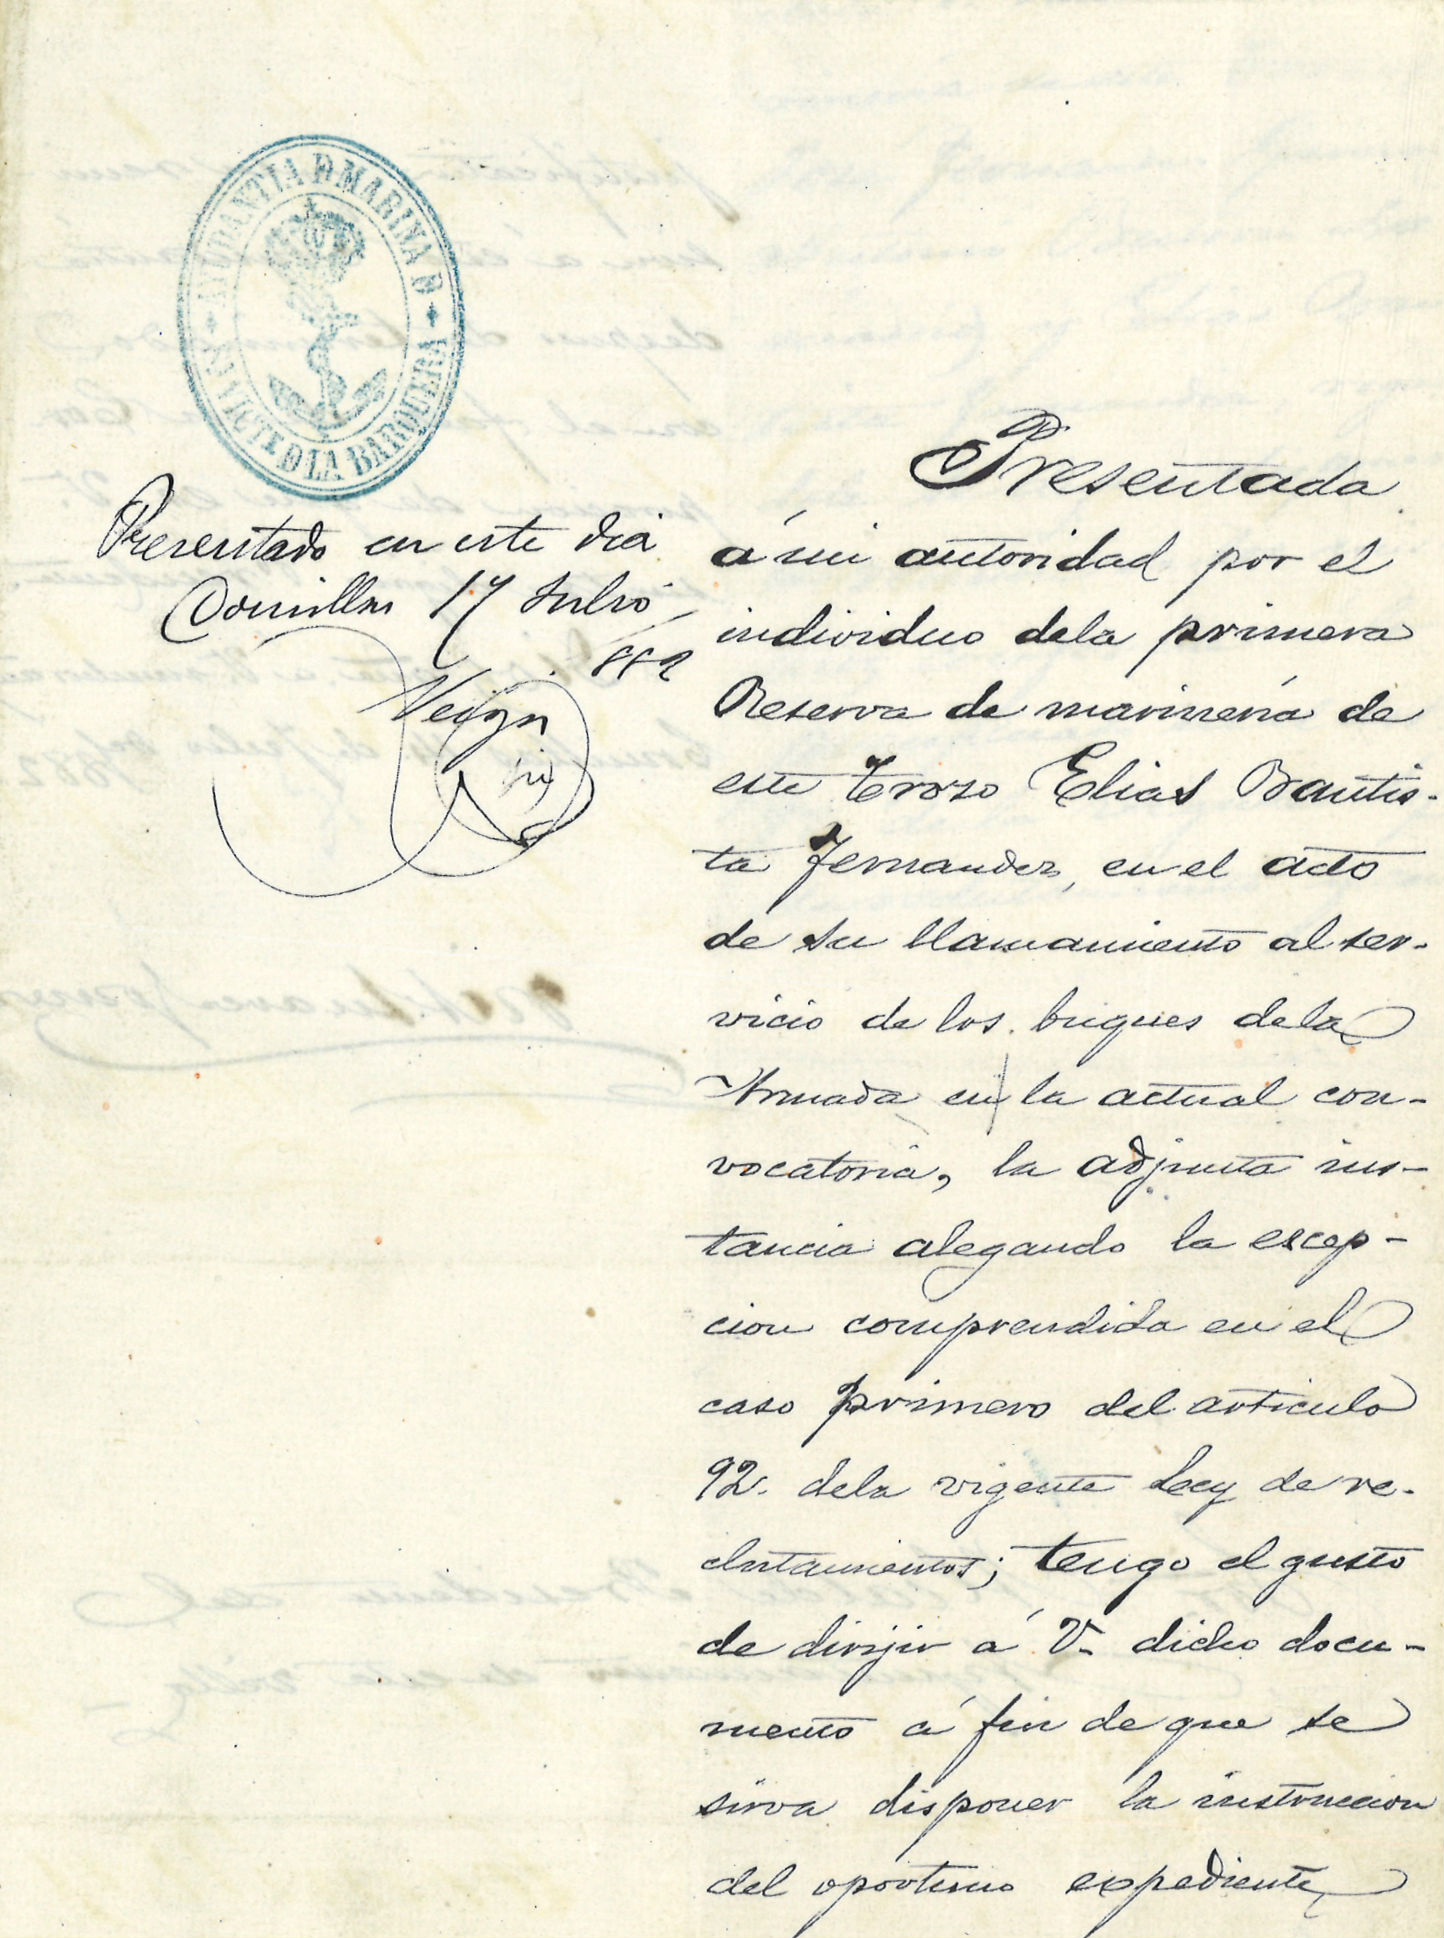 AYUDANTIA D MARINA D
SN VICTE D LA BARQUERA
Presentado en este dia
Comillas 17 Julio
882
Veiga
Presentada
á mi autoridad por el
individuo dela primera
Reserva de marineria de
este Trozo Elias Bautis-
ta Fernandez, en el acto
de su llamamiento al ser-
vicio de los buques dela
Armada en la actual con-
vocatoria, la adjunta ins-
tancia alegando la escep-
cion comprendida en el
caso primero del articulo
92. dela vigente Ley de re-
clutamientos; tengo el gusto
de dirijir á V. dicho docu-
mento á fin de que se
sirva disponer la instruccion
del oportuno expediente